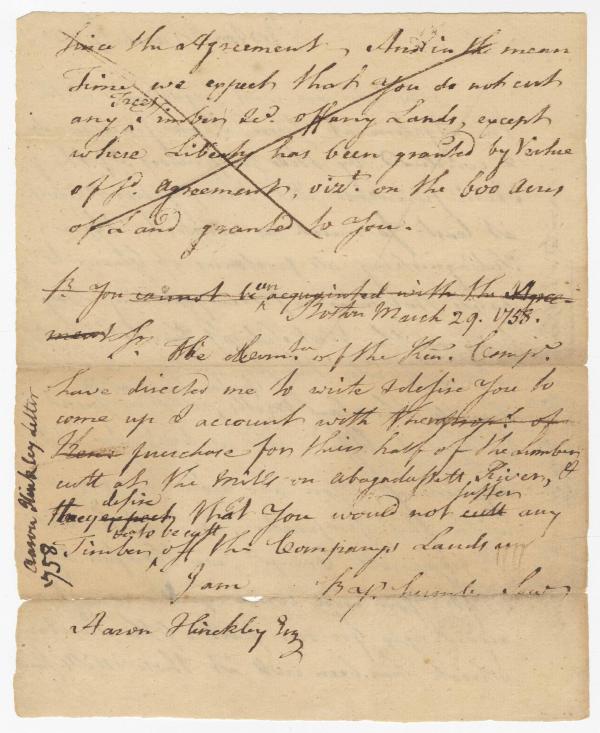 Since the Agreement, And in the mean
Time, we expect that you do not cut
Trees
any Timber &c. off any Lands, except
whose Liberty has been granted by Vertue
of sd. Agreement, vizt. on the 600 Acres
of Land granted to You.
Sr. You cannot be unacquainted with the Agree-
ment
Boston March 29. 1758.
Sr. The Comtee of the Ken. Compy.
have directed me to write & desire You to
come up & account with the propr. of
Kene purchase for their half of the Lumber
cutt at the Mills on Abagadussett River, &
desire suffer
they expect that You would not cutt any
to be cutt
Timber off the Companys Lands
I am Sr. humb Serv
Aaron Hinckley Esq
Aaron Hinkley Letter
1758